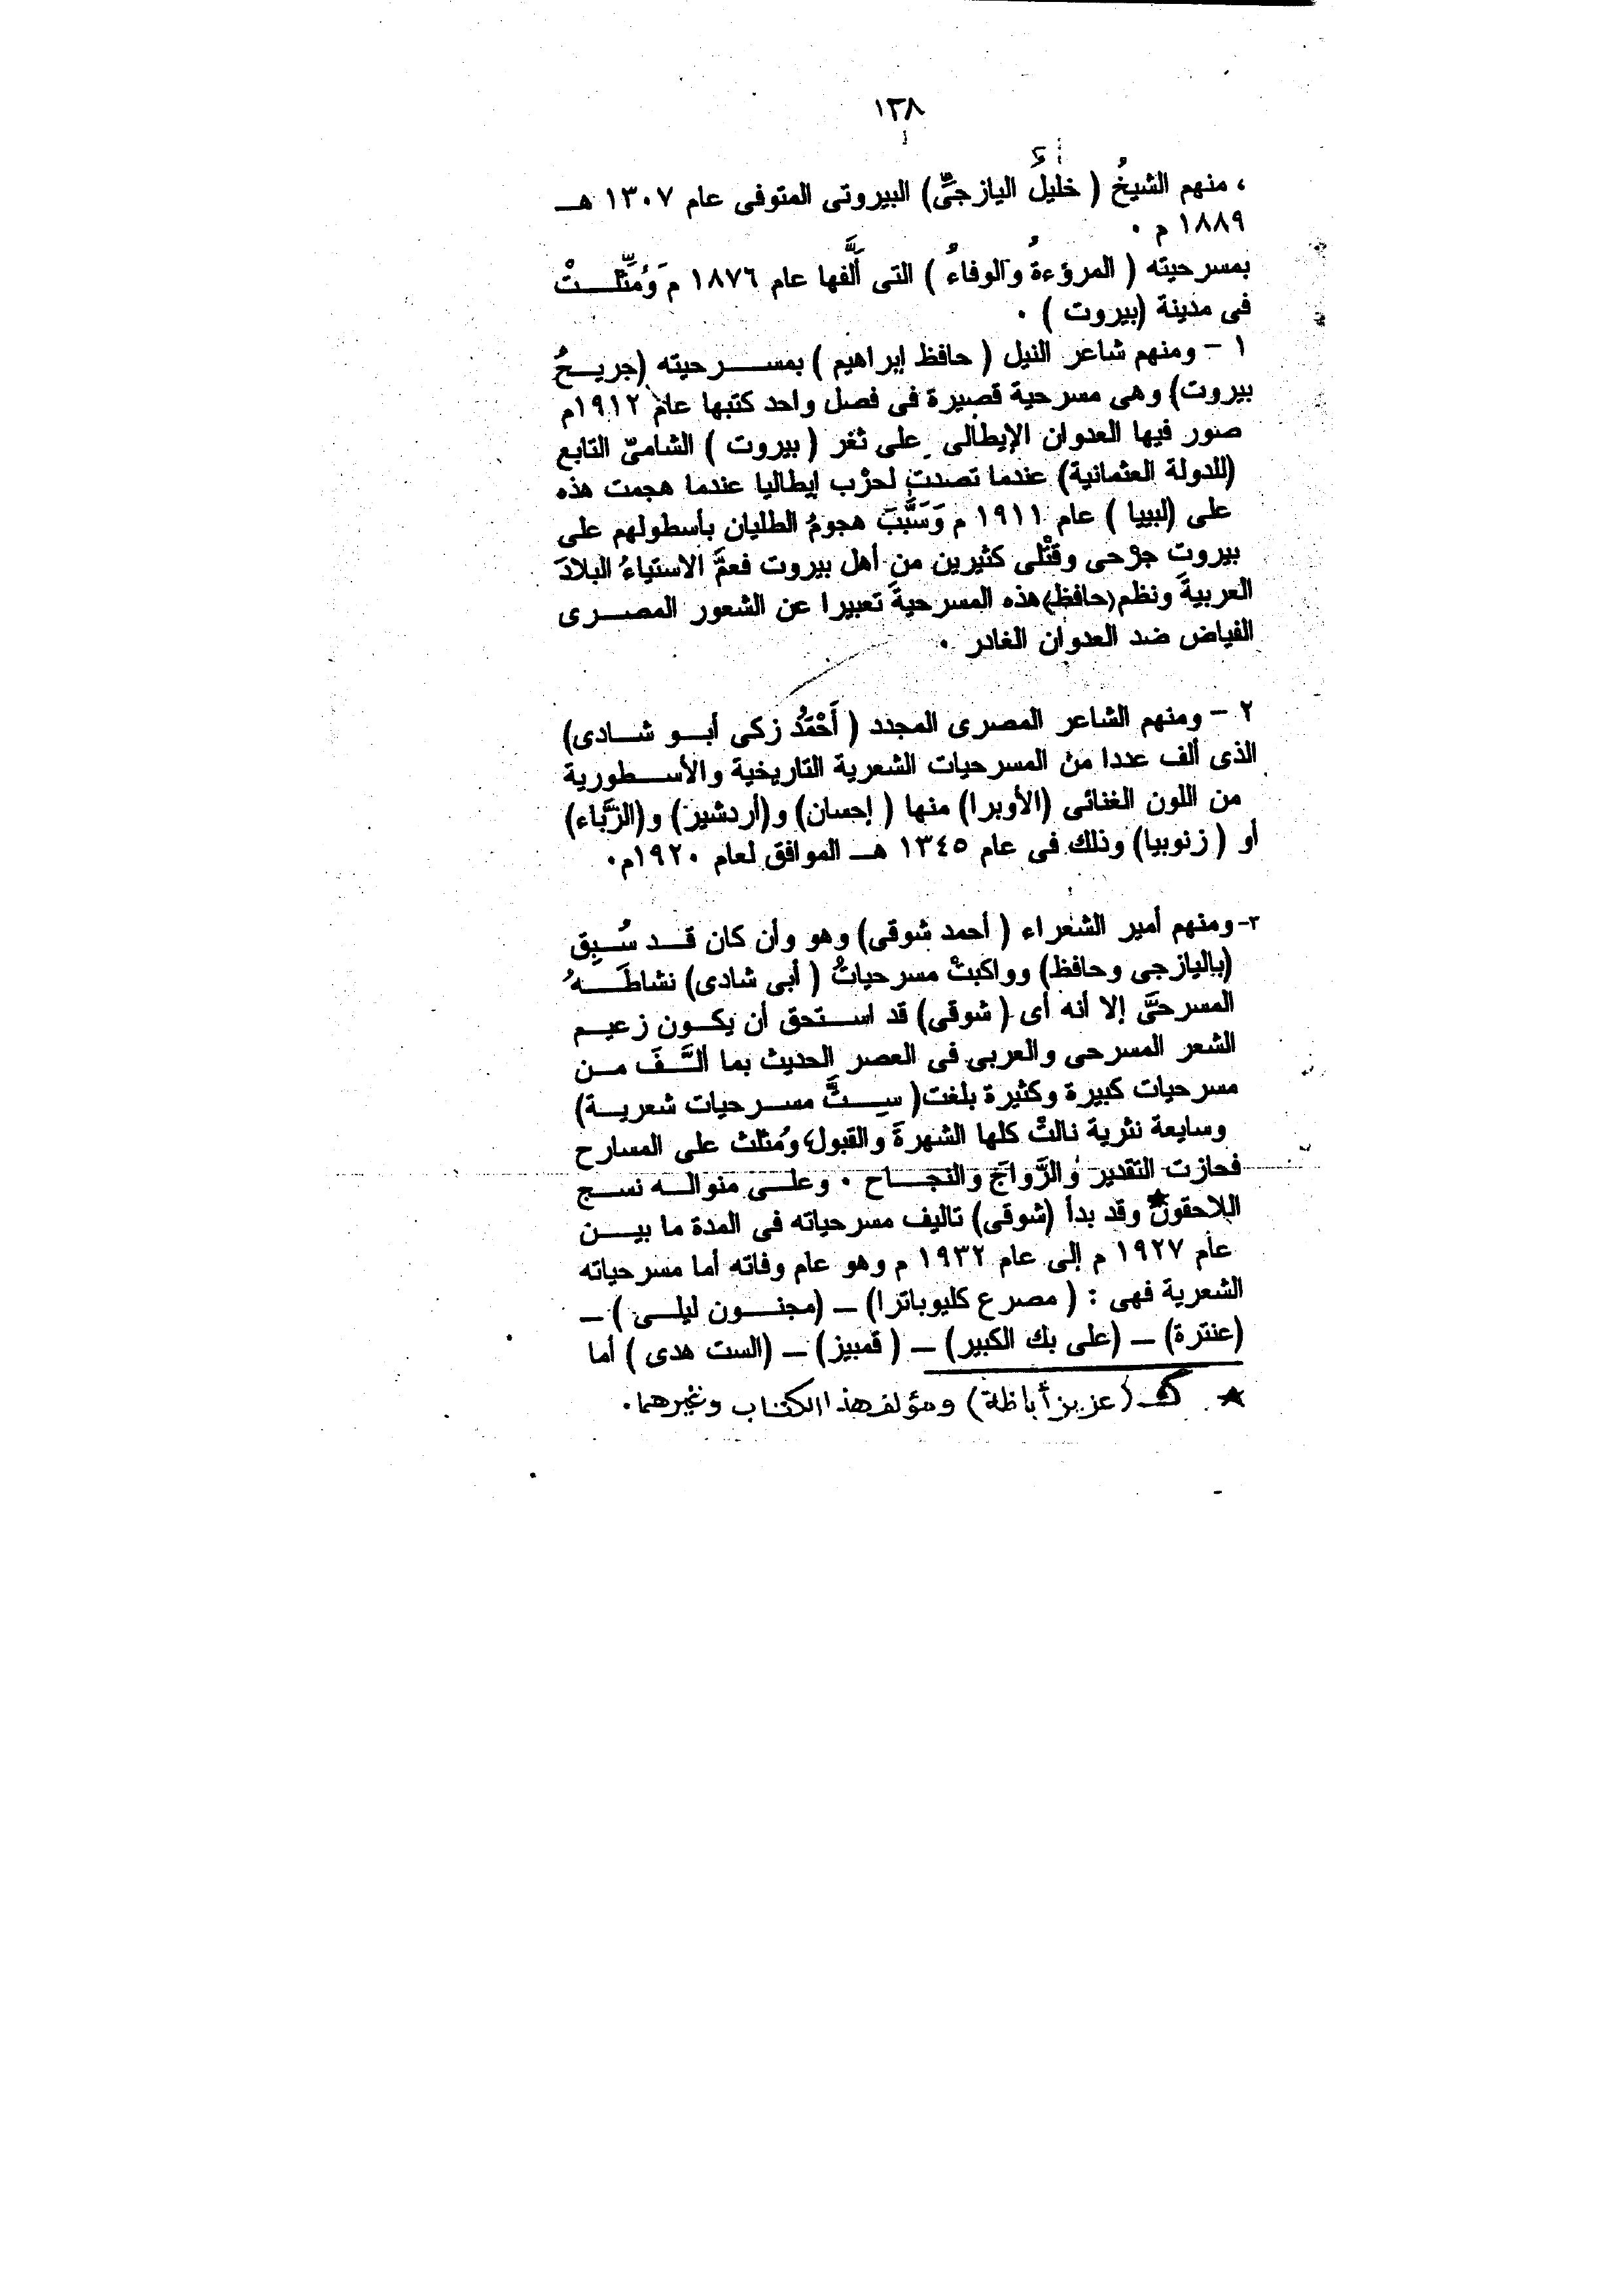 ١٣٨
، منهم الشيخُ ( خليلُ اليازجىِّ) البيروتى المتوفى عام ١٣٠٧ هـ
١٨٨٩ م .
بمسرحيته ( المروءةُ والوفاءُ ) التى ألَّفها عام ١٨٧٦ م وَمُثِّلتْ
فى مدينة (بيروت ) .
١ - ومنهم شاعر النيل ( حافظ إبراهيم ) بمسرحيته (جريحُ
بيروت) وهى مسرحية قصيرة فى فصل واحد كتبها عام ١٩١٢م
صور فيها العدوان الإيطالى على ثغر ( بيروت ) الشامىّ التابع
(للدولة العثمانية) عندما تصدت لحرْب إيطاليا عندما هجمت هذه
على (لبيبا ) عام ١٩١١ م وَسَبَّبَ هجومُ الطليان بأسطولهم على
بيروت جرْحى وقتْلى كثيرين من أهل بيروت فعمَّ الاستياءُ البلادَ
العربيةَ ونظم (حافظ) هذه المسرحيةَ تعبيرا عن الشعور المصرى
الفياض ضد العدوان الغادر .
٢ - ومنهم الشاعر المصرى المجدد ( أَحْمَدُ زكى أبو شادى)
الذى ألف عددا من المسرحيات الشعرية التاريخية والأسطورية
من اللون الغنائى (الأوبرا) منها ( إحسان) و(أردشير) و(الزَّباء)
أو ( زنوبيا) وذلك فى عام ١٣٤٥ هـ الموافق لعام ١٩٢٠م.
٣- ومنهم أمير الشعراء ( أحمد شوقى) وهو وأن كان قد سُبِق
(باليازجى وحافظ) وواكبتْ مسرحياتُ ( أبى شادى) نشاطَهُ
المسرحىَّ إلا أنه أى ( شوقى) قد استحق أن يكون زعيم
الشعر المسرحى والعربى فى العصر الحديث بما ألَّفَ من
مسرحيات كبيرة وكثيرة بلغت( سِتَّ مسرحيات شعرية)
وسابعة نثرية نالتْ كلها الشهرةَ والقبول، ومُثلث على المسارح
فحازت التقدير والرَّواجَ والنجاح . وعلى منواله نسج
اللاحقون★ وقد بدأ (شوقى) تاليف مسرحياته فى المدة ما بين
عام ١٩٢٧ م إلى عام ١٩٣٢ م وهو عام وفاته أما مسرحياته
الشعرية فهى : ( مصرع كليوباترا) – (مجنون ليلى ) –
(عنترة) – (على بك الكبير) – ( قمبيز) – (الست هدى ) أما
★ كـ (عزيز أباظة) ومؤلف هذا الكتاب وغيرهما.